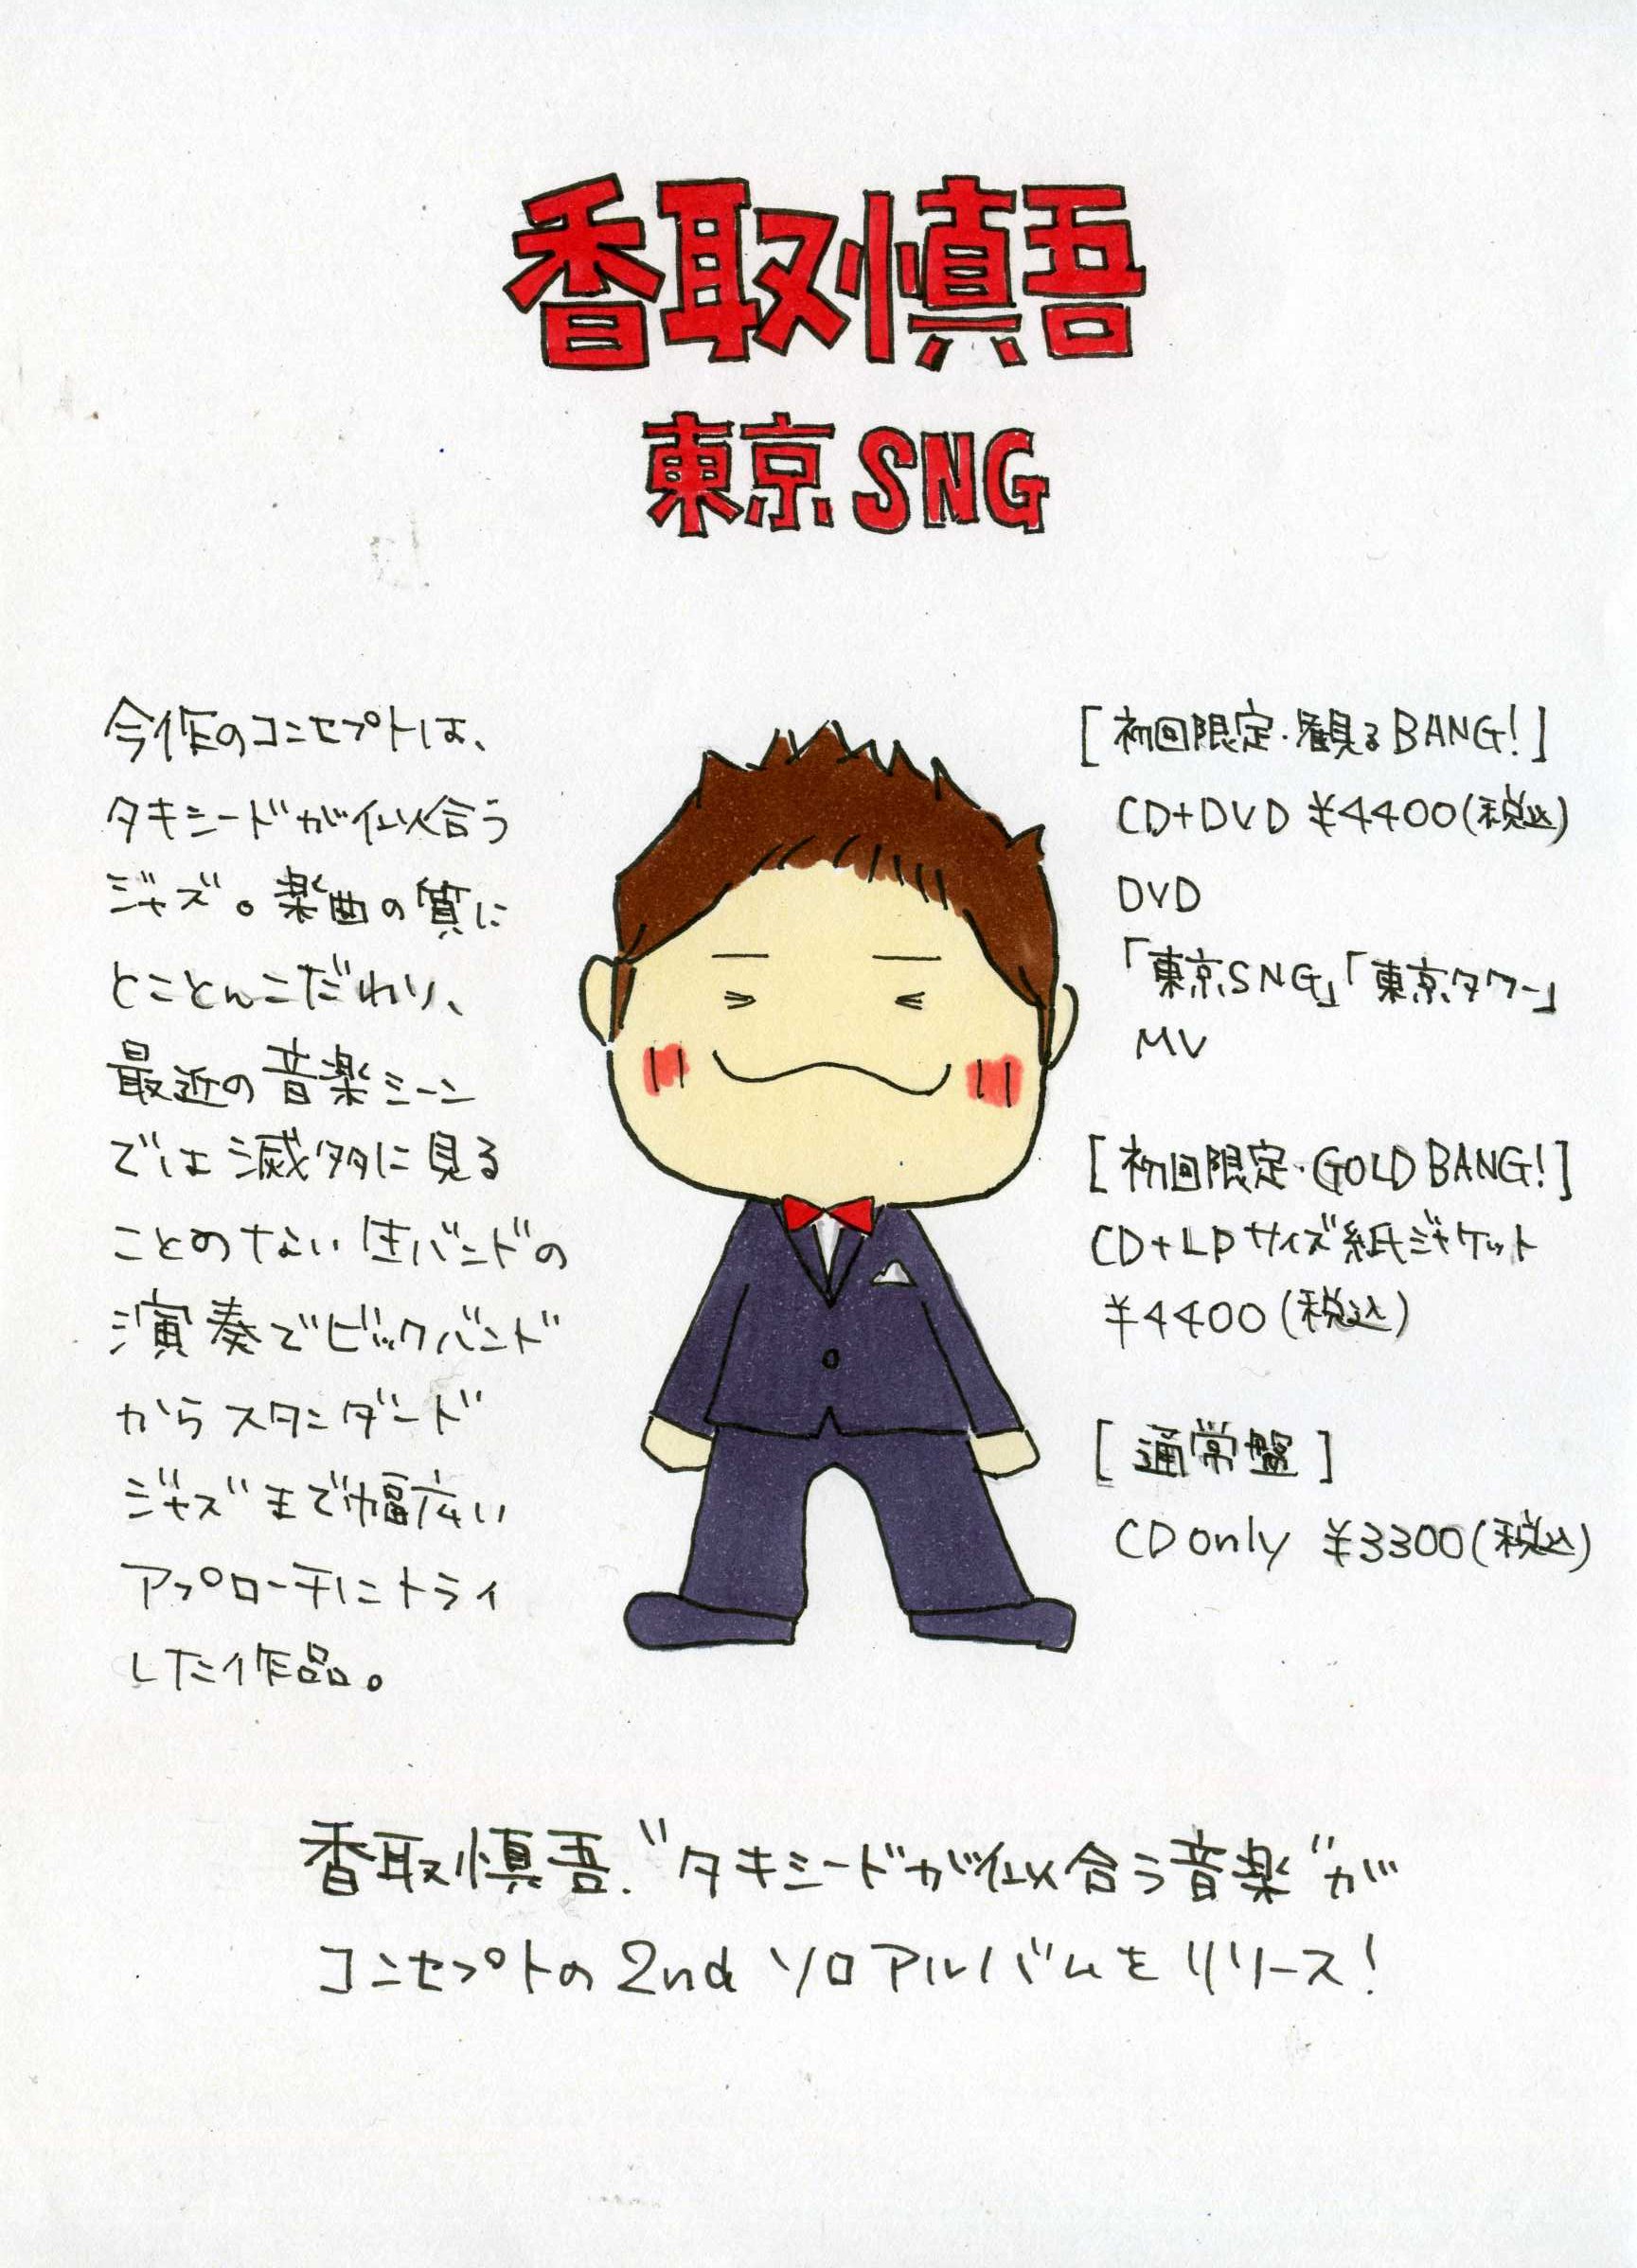 香取慎吾
東京SNG
今作のコンセプトは、
タキシードが似合う
ジャズ。楽曲の質に
とことんこだわり、
最近の音楽シーン
では滅多に見る
ことのない生バンドの
演奏でビックバンド
からスタンダード
ジャズまで幅広い
アプローチにトライ
した作品。
[初回限定・観るBANG!]
CD+DVD ¥4400(税込)
DVD
「東京SNG」「東京タワー」
MV
[初回限定・GOLD BANG!]
CD+LPサイズ紙ジャケット
¥4400(税込)
[通常盤]
CD only ¥3300(税込)
香取慎吾、"タキシードが似合う音楽"が
コンセプトの2nd ソロアルバムをリリース!